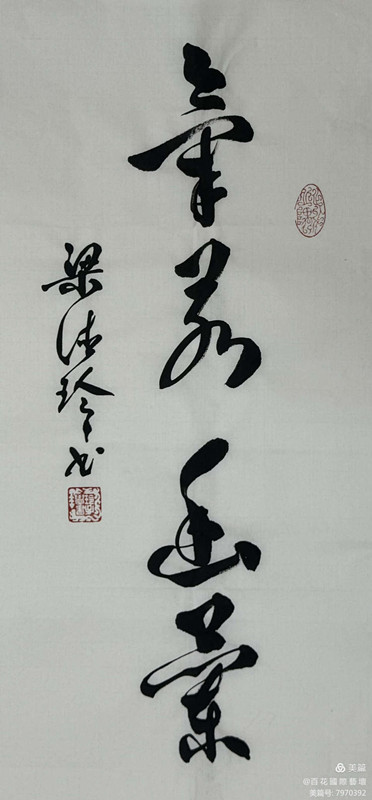 氣若幽蘭
梁德玲书
美篇
@百花國際藝壇
美篇号: 7970392